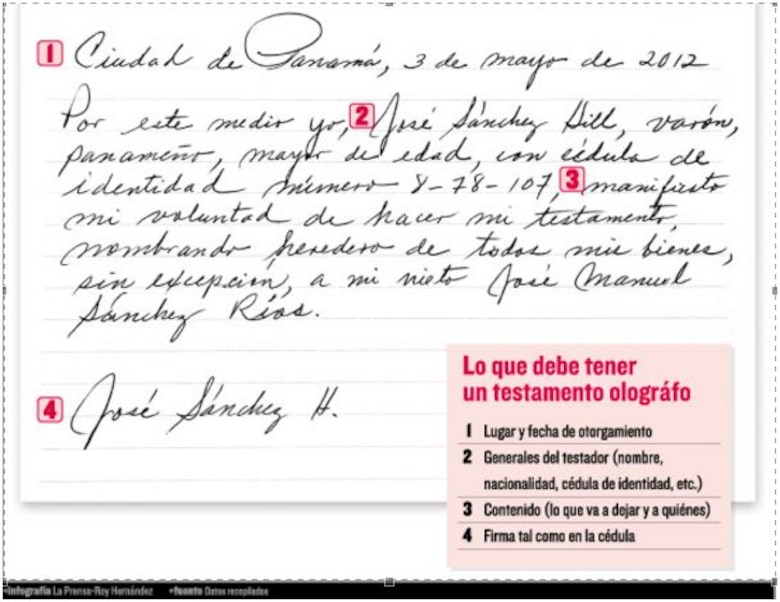 1 Ciudad de Panamá, 3 de mayo de 2012
Por este medio yo, 2 José Sánchez Hill, varón,
panameño, mayor de edad, con cédula de
identidad número 8-78-107, 3 manifiesto
mi voluntad de hacer mi testamento,
nombrando heredero de todos mis bienes,
sin excepción, a mi nieto José Manuel
Sánchez Ríos.
4 José Sánchez H.
Lo que debe tener
un testamento ológrafo
1 Lugar y fecha de otorgamiento
2 Generales del testador (nombre,
nacionalidad, cédula de identidad, etc.)
3 Contenido (lo que va a dejar y a quiénes)
4 Firma tal como en la cédula
+infografía La Prensa-Roy Hernández +fuente Datos recopilados